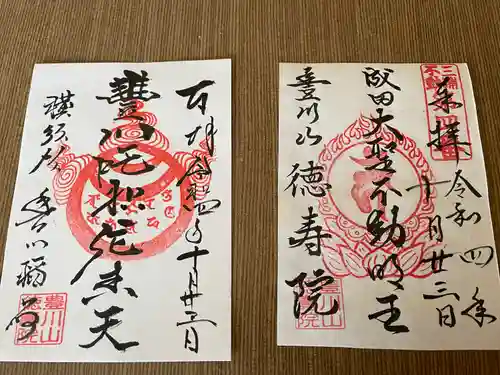 百拝 令和四年十月廿三日
豐川吒枳尼真天
横須賀 豊川稲荷
豊川山
徳寿院
三浦
不動
奉拝
令和四年
十月廿三日
成田大聖不動明王
豊川山 徳寿院
豊川山
徳寿院